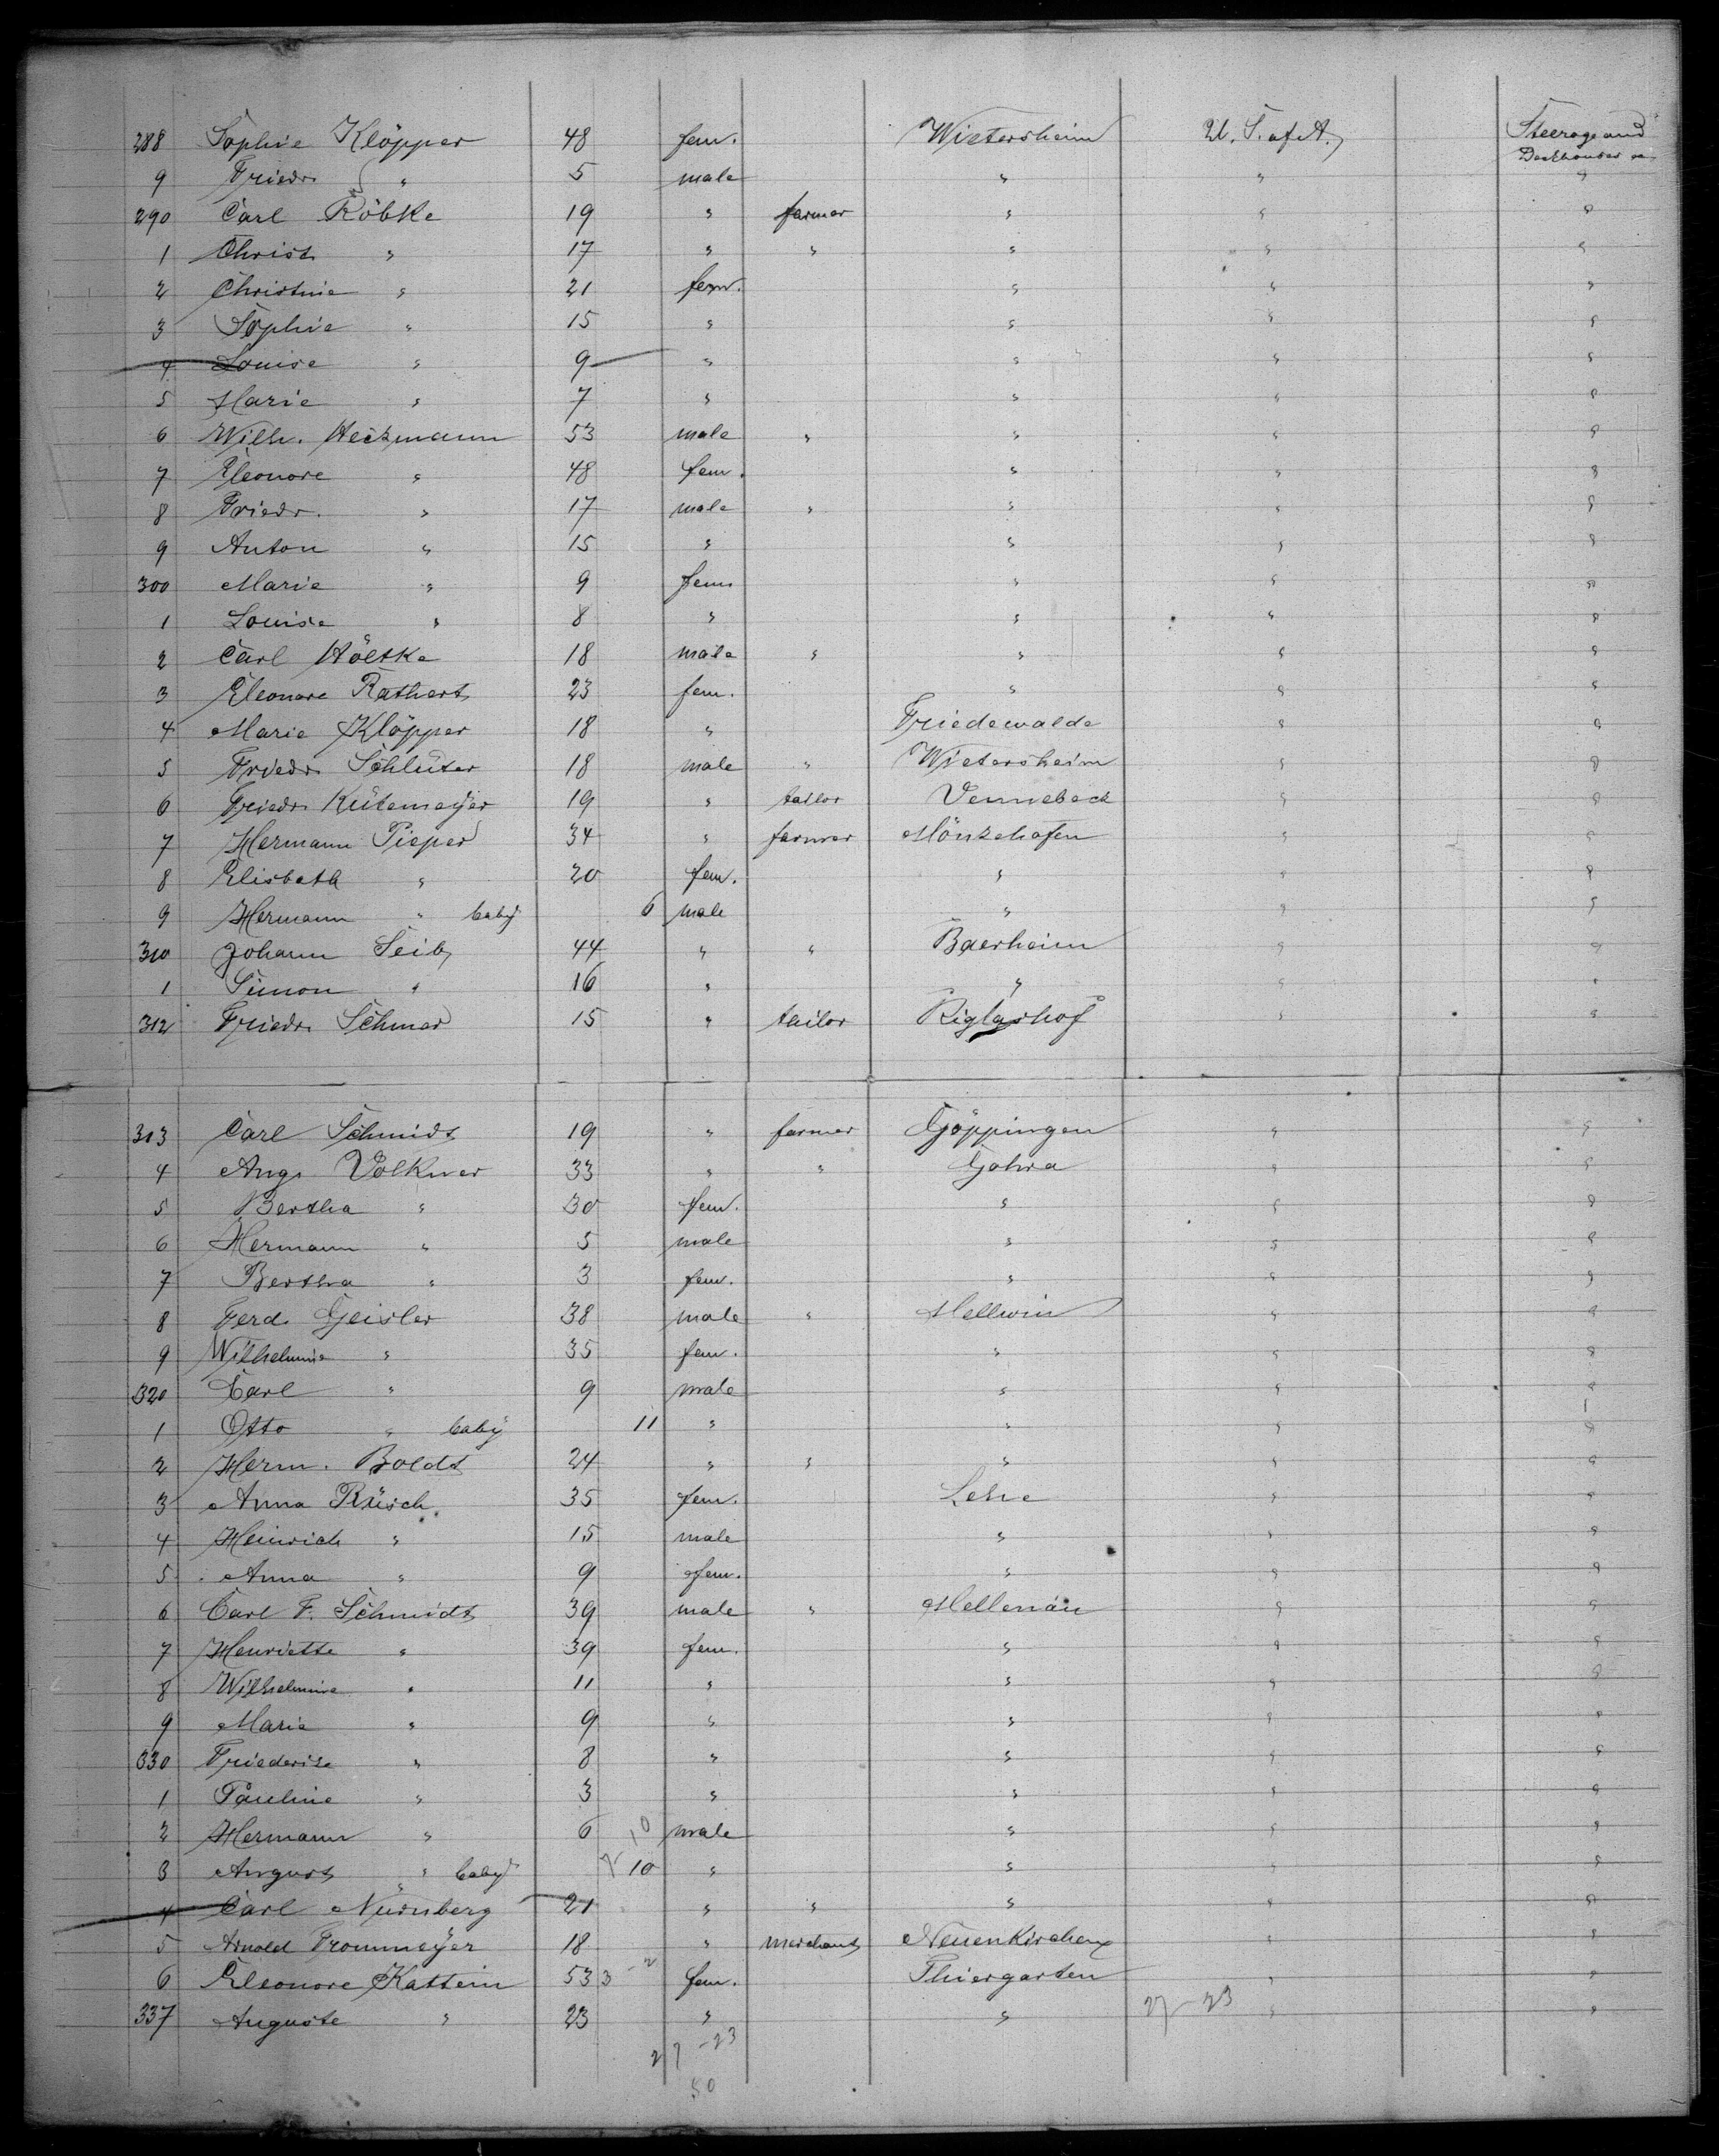 288 Sophie Klöpper 48 fem. Wietersheim U. S. of A. Steerage and
Deckhouse
9 Friedr. " 5 male " " "
290 Carl Röbke 19 " farmer " " "
1 Christ. " 17 " " " " "
2 Christine " 21 fem. " " "
3 Sophie " 15 " " " "
4 Louise " 9 " " " "
5 Marie " 7 " " " "
6 Wilh. Heckmann 53 male " " " "
7 Eleonore " 48 fem. " " "
8 Friedr. " 17 male " " " "
9 Anton " 15 " " " "
300 Marie " 9 fem " " "
1 Louise " 8 " " " "
2 Carl Höltke 18 male " " " "
3 Eleonore Rathert 23 fem. " " "
4 Marie Klöpper 18 " Friedewalde " "
5 Friedr. Schlüter 18 male " Wietersheim " "
6 Friedr. Kütemeyer 19 " tailor Vennebeck " "
7 Hermann Pieper 34 " farmer Mönkehofen " "
8 Elisbeth " 20 fem. " " "
9 Hermann " baby 6 male " " "
310 Johann Seib 44 " " Baerheim " "
1 Simon " 16 " " " "
312 Friedr. Schmer 15 " tailor Riglashof " "
313 Carl Schmidt 19 " farmer Göppingen " "
4 Aug. Volkmer 33 " " Gohra " "
5 Bertha " 30 fem. " " "
6 Hermann " 5 male " " "
7 Bertha " 3 fem. " " "
8 Ferd. Geisler 38 male " Mellwin " "
9 Wilhelmine " 35 fem. " " "
320 Carl " 9 male " " "
1 Otto " baby 11 " " " "
2 Herm. Boldt 24 " " " " "
3 Anna Rüsch 35 fem. Lehe " "
4 Heinrich " 15 male " " "
5 Anna " 9 fem. " " "
6 Carl F. Schmidt 39 male " Mellenau " "
7 Henriette " 39 fem. " " "
8 Wilhelmine " 11 " " " "
9 Marie " 9 " " " "
330 Friederike " 8 " " " "
1 Pauline " 3 " " " "
2 Hermann " 6 10 male " " "
3 August " baby 10 " " " "
4 Carl Nürnberg 21 " " " " "
5 Arnold Trommeyer 18 " merchant Neuenkirchen " "
6 Eleonore Kattein 53 3 -2 fem. Thiergarten " "
337 Auguste " 23 " " 27-23 " "
27-23
50